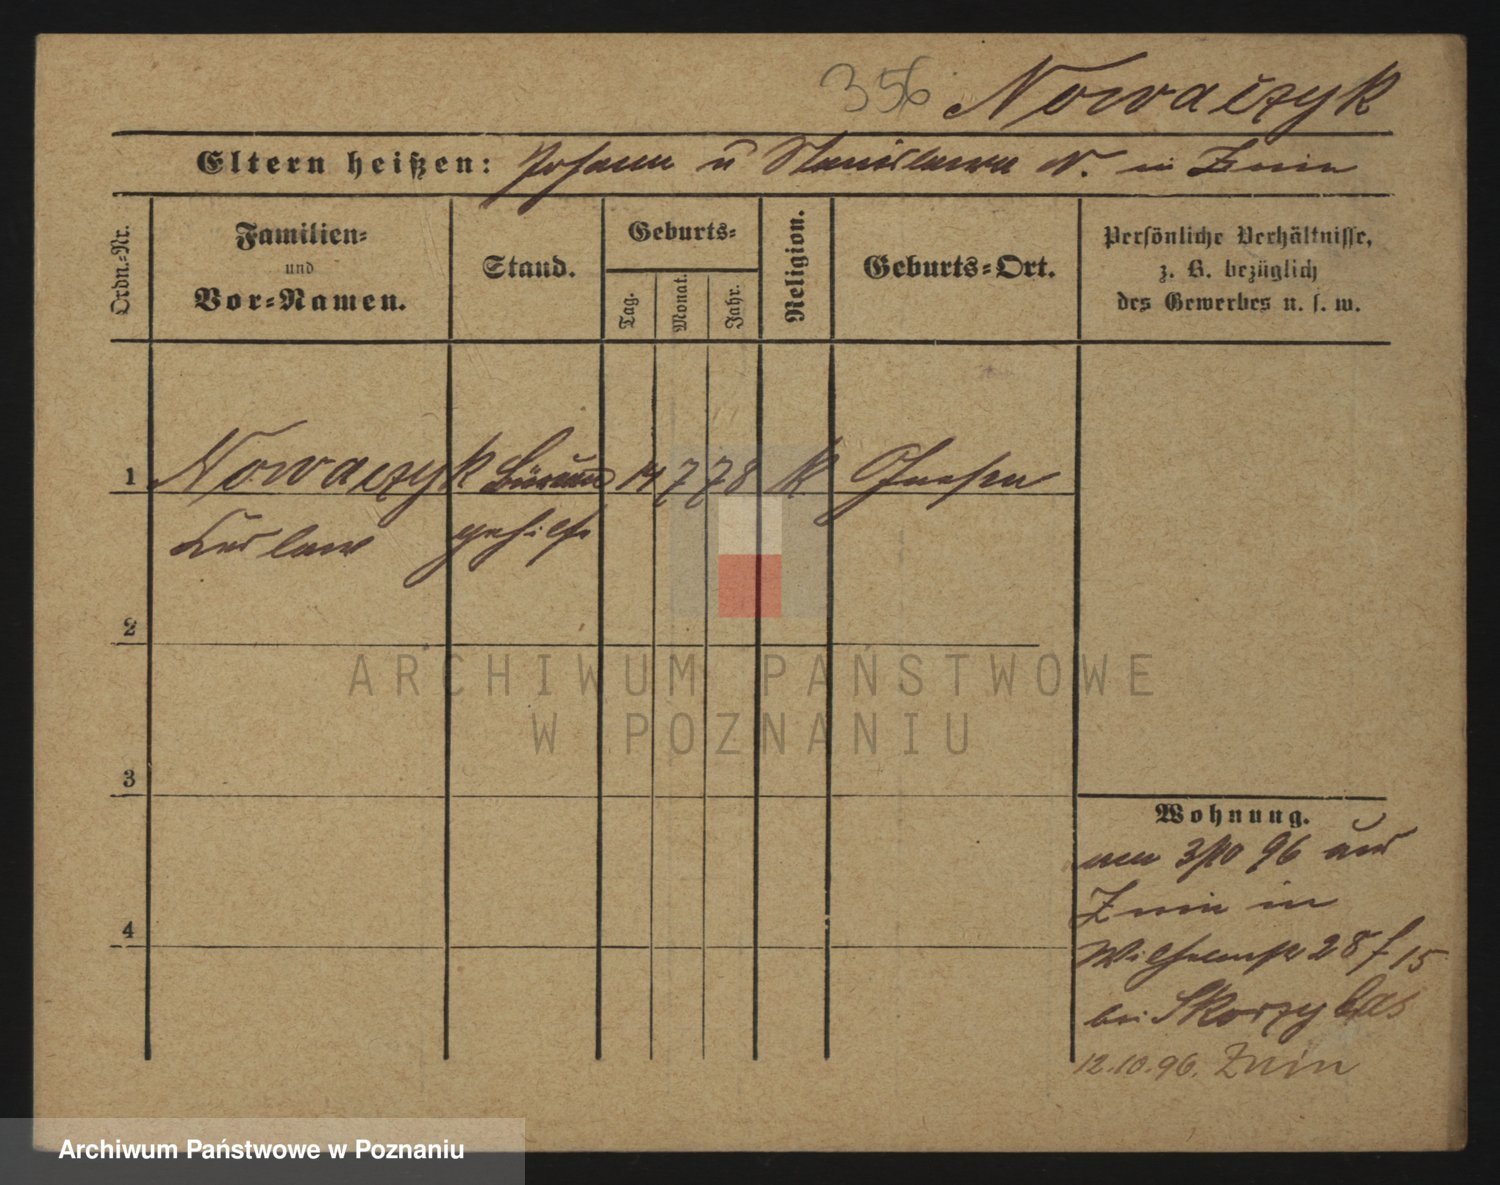 356 Nowaczyk
Eltern heißen: Johann u Stanislawa N. in Znin
Ordn.-Nr.
Familien-
und
Vor-Namen.
Stand.
Geburts-
Tag.
Monat.
Jahr.
Religion.
Geburts-Ort.
Persönliche Verhältnisse,
z. B. bezüglich
des Gewerbes u. s. w.
1 Nowaczyk 14 7 78 K Gnesen
gehilfe
2
3
4
Wohnung.
3/10 96 aus
Znin in
Wilhelmstr 28 f 15
bei Skorzybas
12.10.96. Znin
ARCHIWUM PAŃSTWOWE
W POZNANIU
Archiwum Państwowe w Poznaniu